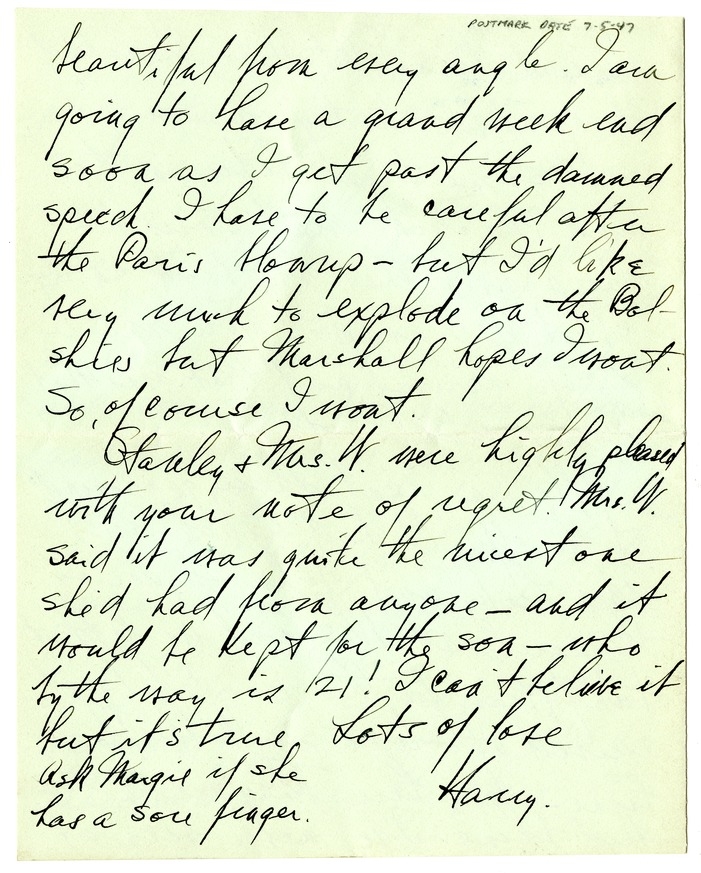 POSTMARK DATE 7-5-47
beautiful from every angle. I am
going to have a grand week end
soon as I get past the damned
speech. I have to be careful after
the Paris blowup - but I'd like
very much to explode on the Bol-
shies but Marshall hopes I wont.
So, of course I wont.
Stanley & Mrs. W. were highly pleased
with your note of regret. Mrs. W.
said it was quite the nicest one
she'd had from anyone - and it
would be kept for the son - who
by the way is 21! I can't believe it
but it's true. Lots of love
Ask Margie if she
has a sore finger.
Harry.